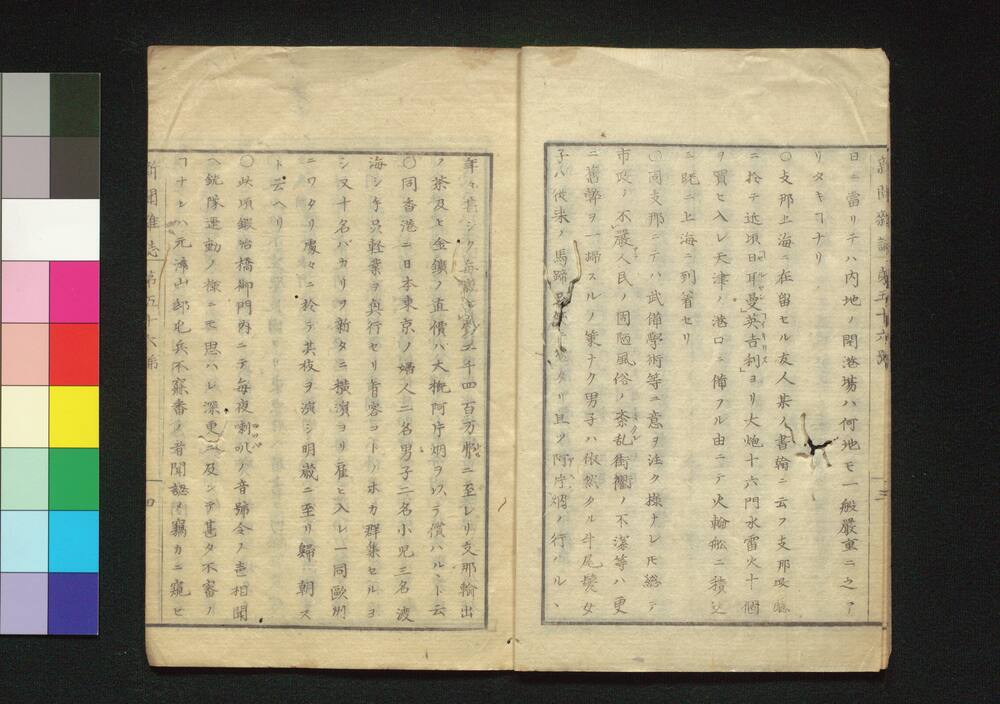 新聞雑誌第五十六號 三
日ニ當リテハ内地ノ開港場ハ何地モ一般嚴重ニ之ア
リタキヿナリ
〇支那上海ニ在留セル友人某ノ書翰ニ云フ支那政廳
ニ於テ近頃日耳曼英吉利ヨリ大炮十六門水雷火十個
ヲ買ヒ入レ天津ノ港口ニ備フル由ニテ火輪舩ニ積込
ミ既ニ上海ニ到着セリ
〇同支那ニテハ武備學術等ニ意ヲ注ク様ナレ𪜈總テ
市政ノ不嚴人民ノ固陋風俗ノ紊乱街衢ノ不潔等ハ更
ニ舊弊ヲ一掃スルノ策ナク男子ハ依然タル斗尾婦女
子ハ従来ノ馬蹄 タリ且ツ阿片烟ノ行ハルヽ
年々甚シク毎歳 千四百万 ニ至レリ支那輸出
ノ茶及ヒ金鎖ノ直價ハ大概阿片烟ヲ以テ償ハルヽト云
〇同香港ニ日本東京ノ婦人二名男子二名小児三名渡
海シ手品軽業ヲ興行セリ看客コトノホカ群集セルヨ
シ又十名バカリヲ新タニ横濱ヨリ雇ヒ入レ一同歐洲
ニワタリ處々ニ於テ其伎ヲ演シ明歳ニ至リ歸朝ス
ト云ヘリ
〇此頃鍛冶橋御門内ニテ毎夜喇叭ノ音號令ノ声相聞
ヘ銃隊運動ノ様ニモ思ハレ深更ニ及ンテ甚タ不審ノ
ヿナレハ元津山邸屯兵不寐番ノ者聞認メ竊カニ窺ヒ
新聞雑誌第五十六號 四